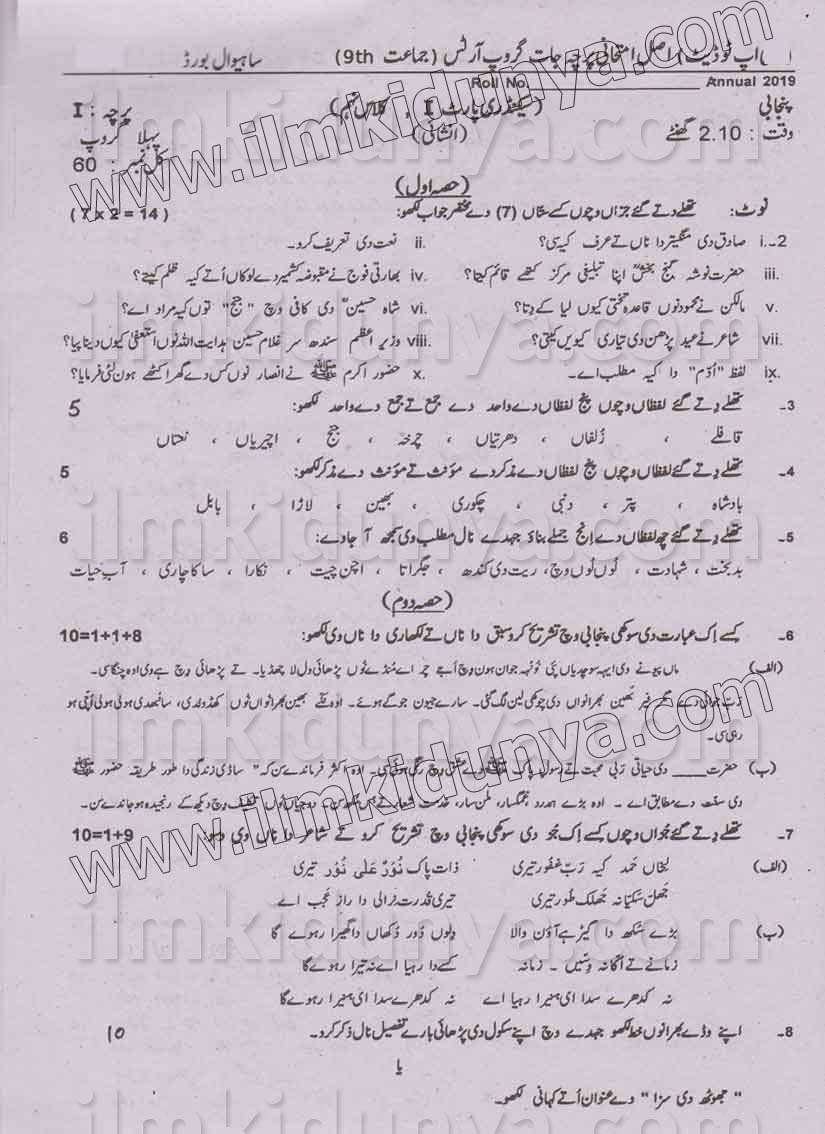 (اپ ٹوڈیٹ) اصل امتحانی پرچہ جات گروپ آرٹس (جماعت 9th) ساہیوال بورڈ
Roll No. Annual 2019
پنجابی (سیکنڈری پارٹ I ، کلاس نہم) پرچہ : I
وقت : 2.10 گھنٹے (انشائی) پہلا گروپ
کل نمبر : 60
(حصہ اول)
نوٹ: تھلے دتے گئے جزاں وچوں کسے ستاں (7) دے مختصر جواب لکھو: (7 x 2 = 14)
2- i. صادق دی منگیتر دا ناں تے عرف کیہ سی؟ ii. نعت دی تعریف کرو۔
iii. حضرت نوشہ گنج بخشؒ اپنا تبلیغی مرکز کتھے قائم کیتا؟ iv. بھارتی فوج نے مقبوضہ کشمیر دے لوکاں اُتے کیہ ظلم کیتے؟
v. مالکن نے محمود نوں قاعدہ تختی کیوں لیا کے دِتا؟ vi. شاہ حسینؒ دی کافی وچ "جج" توں کیہ مراد اے؟
vii. شاعر نے عید پڑھن دی تیاری کیویں کیتی؟ viii. وزیر اعظم سندھ سر غلام حسین ہدایت اللہ نوں استعفیٰ کیوں دینا پیا؟
ix. لفظ "اُدّم" دا کیہ مطلب اے۔ x. حضور اکرم ﷺ نے انصار نوں کس دے گھر اکٹھے ہون لئی فرمایا؟
3- تھلے دتے گئے لفظاں وچوں پنج لفظاں دے واحد دے جمع تے جمع دے واحد لکھو: 5
قافلے ، زُلفاں ، دھرتیاں ، چرخہ ، جج ، اچیریاں ، نعتاں
4- تھلے دتے گئے لفظاں وچوں پنج لفظاں دے مذکر دے مؤنث تے مؤنث دے مذکر لکھو: 5
بادشاہ ، پتر ، دنبی ، چکوری ، بھین ، لاڑا ، بابل
5- تھلے دتے گئے چھ لفظاں دے اِنج جملے بناؤ جہدے نال مطلب وی سمجھ آ جاوے: 6
بدبخت ، شہادت ، لُوں لُوں وچ ، ریت دی کندھ ، جگراتا ، اچن چیت ، نکارا ، ساکا چاری ، آب حیات
(حصہ دوم)
6- کسے اِک عبارت دی سوکھی پنجابی وچ تشریح کرو سبق دا ناں تے لکھاری دا ناں وی لکھو: 10=1+1+8
(الف) ماں پیو نے دی ایہہ سوچدیاں پئی نونہہ جوان ہون وچ اَجے چر اے مُنڈے نوں پڑھائی دل لا چھڈیا۔ تے پڑھائی وچ ہے وی اوہ چنگا سی۔
رَبّ جوائی دے گھر فیر بھین بھرانواں دی چوکھی لین لگ گئی۔ سارے جیون جوگے ہوئے۔ اوہ نکّے بھین بھرانواں نُوں کھڈوندی، سانبھدی ہولی ہولی اُچّی ہو
رہی سی۔
(ب) حضرت ____ دی حیاتی رَبی محبت تے رسول پاک ﷺ دے عشق وچ رنگی ہوئی سی۔ اوہ اکثر فرماندے سن کہ "ساڈی زندگی دا طور طریقہ حضور ﷺ
دی سنت دے مطابق اے۔ اوہ بڑے ہمدرد، غمگسار، ملن سار، خدمت شعار تے ہس مکھ سن۔ دوجیاں نُوں تکلیف وچ ویکھ کے رنجیدہ ہو جاندے سن۔
7- تھلے دتے گئے جُزواں وچوں کسے اِک جُزو دی سوکھی پنجابی وچ تشریح کرو تے شاعر دا ناں وی دسو: 10=1+9
(الف) لِکھاں حَمد کیہ رَبّ غفور تیری ذات پاک نُوْرٌ عَلٰی نُوْر تیری
جَھل سَکیا نہ جَھلک طُور تیری تیری قُدرت نرالی دا راز عجب اے
(ب) بڑے سُکھ دا گیڑ ہے آؤن والا دِلوں دُور دُکھاں دا گھیرا رہوے گا
زمانے تے اُگا نہ وسّیں ۔ زمانہ کسے دا رہیا اے نہ تیرا رہوے گا
نہ کدھرے سدا ای ہنیرا رہیا اے نہ کدھرے سدا ای ہنیرا رہوے گا
8- اپنے وڈے بھرا نوں خط لکھو جہدے وچ اپنے سکول دی پڑھائی بارے تفصیل نال ذکر کرو۔ 10
یا
"جھوٹھ دی سزا" دے عنوان اُتے کہانی لکھو۔
www.ilmkidunya.com
www.ilmkidunya.com
ilmkidunya.com
ilmkidunya.com
ilmkidunya.com
ilmkidunya.com